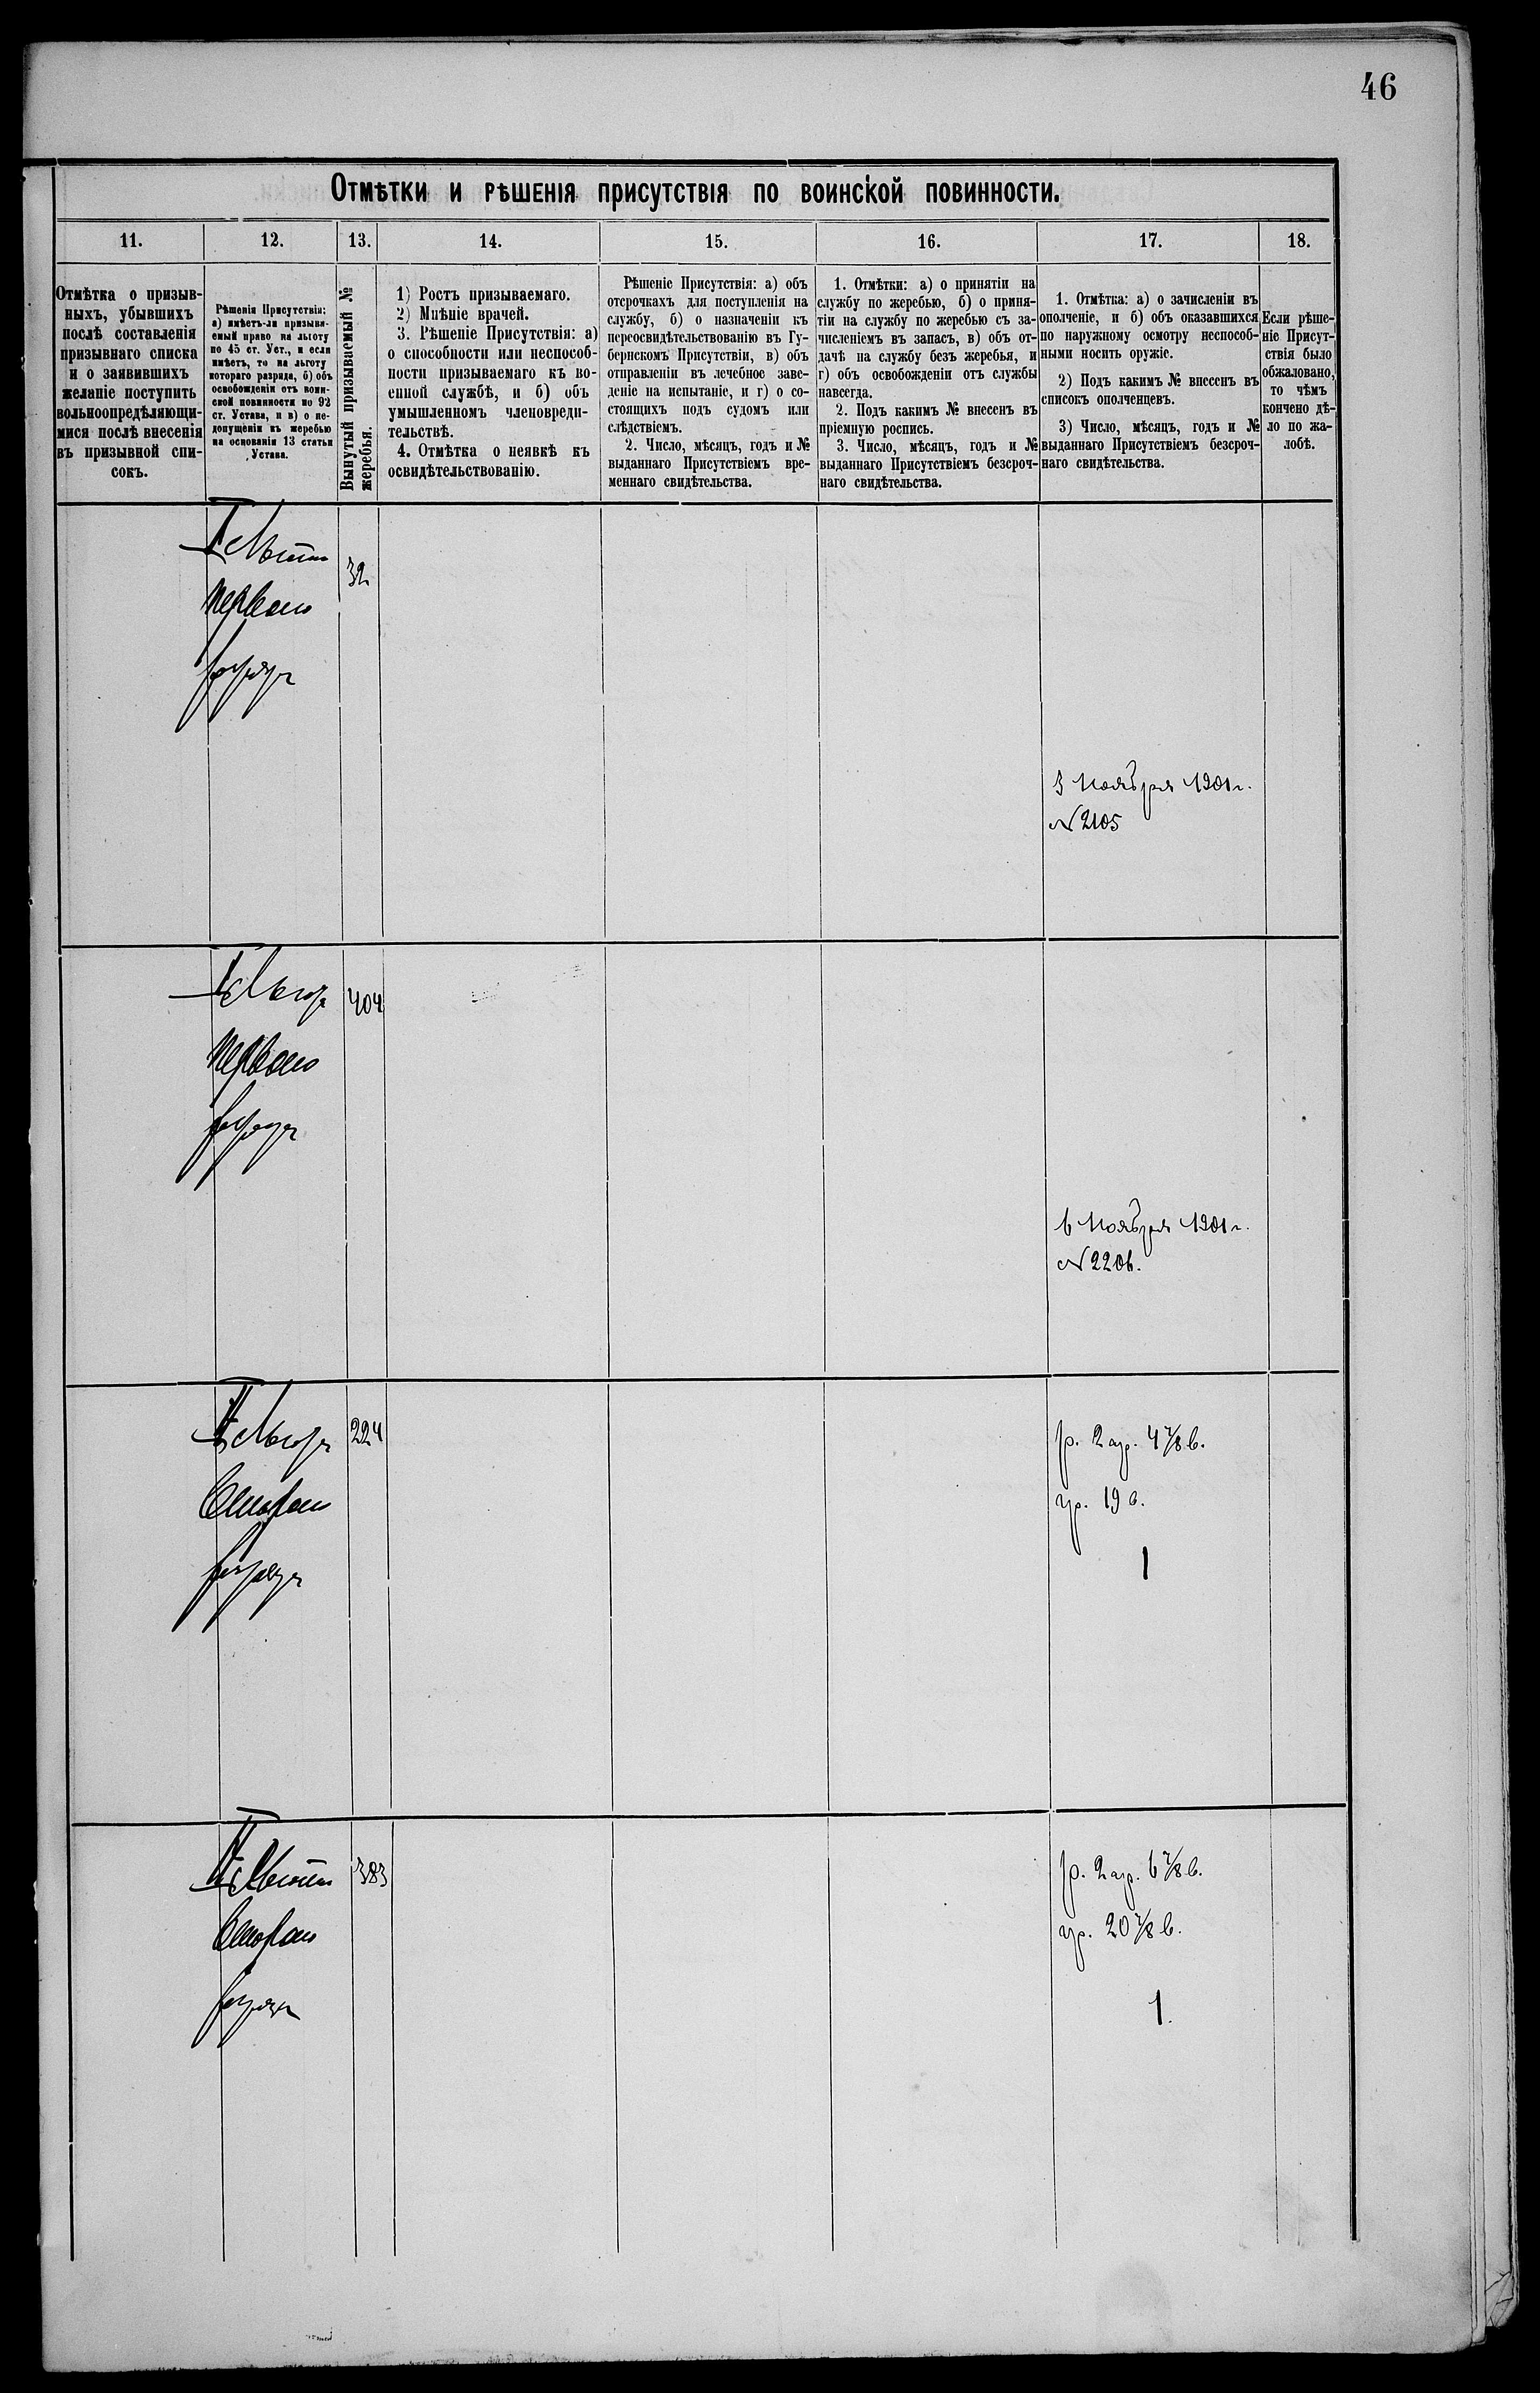 46
Отмѣтки и рѣшенія присутствія по воинской повинности.
11.
12.
13.
14.
15.
16.
17.
18.
Отмѣтка о призыв-
ныхъ, убывшихъ
послѣ составленія
призывнаго списка
и о заявившихъ
желаніе поступить
вольноопредѣляющи-
мися послѣ внесенія
въ призывной спи-
сокъ.
Рѣшенія Присутствія:
а) имѣетъ-ли призыва-
емый право на льготу
по 45 ст. Уст., и если
имѣетъ, то на льготу
котораго разряда, б) объ
освобожденіи отъ воин-
ской повинности по 92
ст. Устава, и в) о не-
допущеніи къ жеребью
на основаніи 13 статьи
Устава.
Вынутый призываемый №
жеребья.
1) Ростъ призываемаго.
2) Мнѣніе врачей.
3. Рѣшеніе Присутствія: а)
о способности или неспособ-
ности призываемаго къ во-
енной службѣ, и б) объ
умышленномъ членовреди-
тельствѣ.
4. Отмѣтка о неявкѣ къ
освидѣтельствованію.
Рѣшеніе Присутствія: а) объ
отсрочкахъ для поступленія на
службу, б) о назначеніи къ
переосвидѣтельствованію въ Гу-
бернскомъ Присутствіи, в) объ
отправленіи въ лечебное заве-
деніе на испытаніе, и г) о со-
стоящихъ подъ судомъ или
слѣдствіемъ.
2. Число, мѣсяцъ, годъ и №
выданнаго Присутствіемъ вре-
меннаго свидѣтельства.
1. Отмѣтки: а) о принятіи на
службу по жеребью, б) о приня-
тіи на службу по жеребью съ за-
численіемъ въ запасъ, в) объ от-
дачѣ на службу безъ жеребья, и
г) объ освобожденіи отъ службы
навсегда.
2. Подъ какимъ № внесенъ въ
пріемную роспись.
3. Число, мѣсяцъ, годъ и №
выданнаго Присутствіемъ безсроч-
наго свидѣтельства.
1. Отмѣтка: а) о зачисленіи въ
ополченіе, и б) объ оказавшихся
по наружному осмотру неспособ-
ными носить оружіе.
2) Подъ какимъ № внесенъ въ
списокъ ополченцевъ.
3) Число, мѣсяцъ, годъ и №
выданнаго Присутствіемъ безсроч-
наго свидѣтельства.
Если рѣше-
ніе Присут-
ствія было
обжаловано,
то чѣмъ
кончено дѣ-
ло по жа-
лобѣ.
I
32
перваго
разряда
3 Ноября 1901 г.
№ 2105
I
404
перваго
разряда
6 Ноября 1901 г.
№ 2206.
II
224
второго
разряда
р. 2 ар. 4 7/8 в.
гр. 19 в.
1
II
383
второго
разряда
р. 2 ар. 6 7/8 в.
гр. 20 7/8 в.
1.